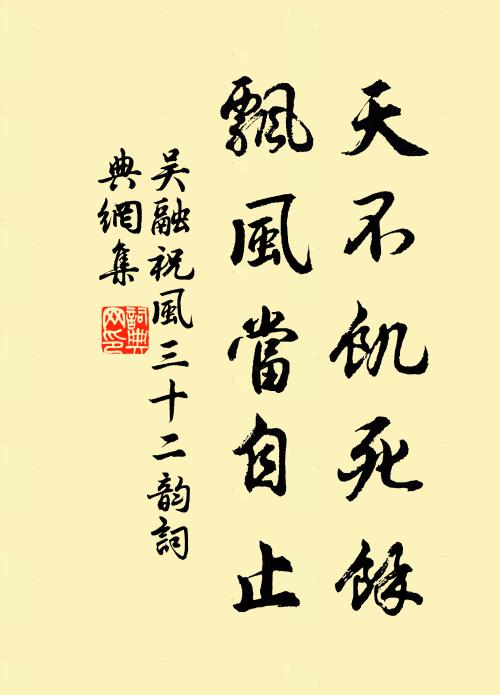 天不飢死餘
飄風當自止
吴融祝風三十二韵詞
典網集
詞典
网印